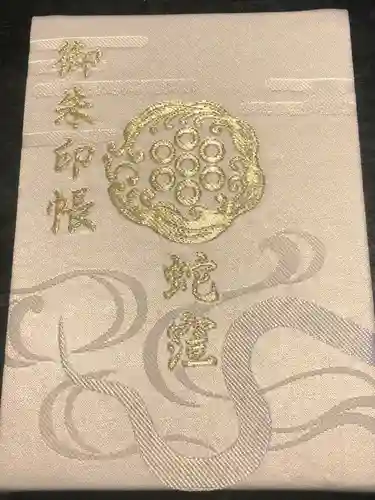 御朱印帳
蛇窪